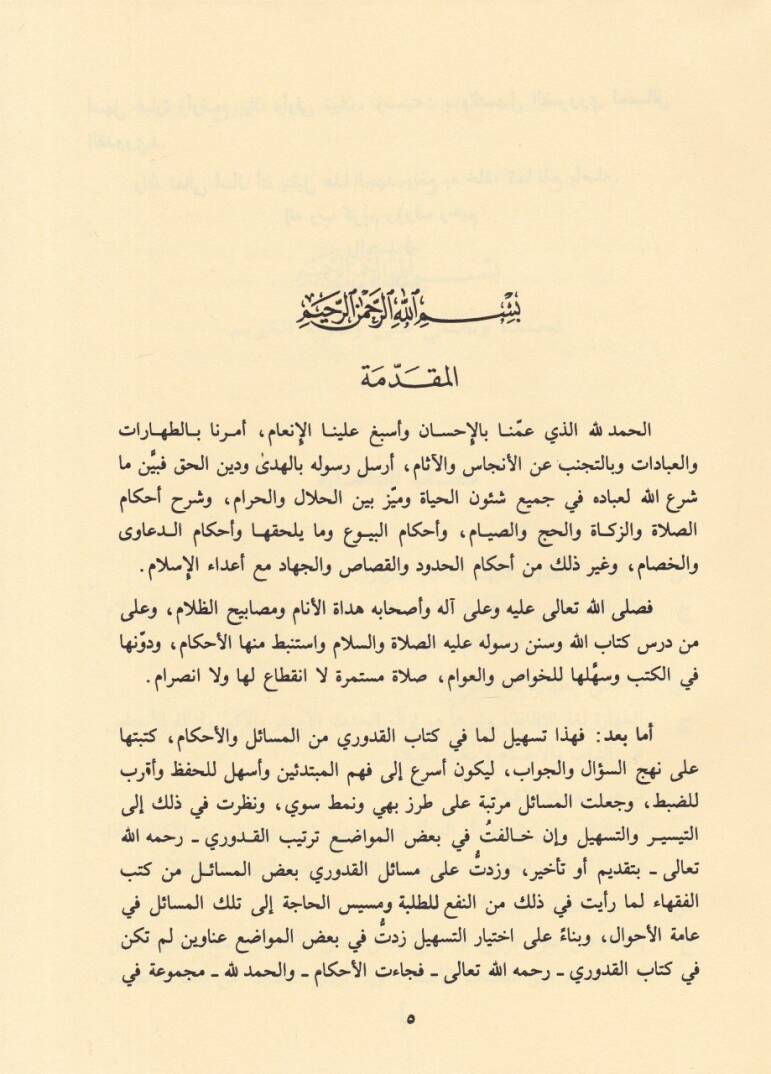 بسم الله الرحمن الرحيم
المقدّمة
الحمد لله الذي عمّنا بالإحسان وأسبغ علينا الإنعام، أمرنا بالطهارات
والعبادات وبالتجنب عن الأنجاس والآثام، أرسل رسوله بالهدىٰ ودين الحق فبيَّن ما
شرع الله لعباده في جميع شئون الحياة وميّز بين الحلال والحرام، وشرح أحكام
الصلاة والزكاة والحج والصيام، وأحكام البيوع وما يلحقها وأحكام الدعاوى
والخصام، وغير ذلك من أحكام الحدود والقصاص والجهاد مع أعداء الإسلام.
فصلى الله تعالى عليه وعلى آله وأصحابه هداة الأنام ومصابيح الظلام، وعلى
من درس كتاب الله وسنن رسوله عليه الصلاة والسلام واستنبط منها الأحكام، ودوّنها
في الكتب وسهَّلها للخواص والعوام، صلاة مستمرة لا انقطاع لها ولا انصرام.
أما بعد: فهذا تسهيل لما في كتاب القدوري من المسائل والأحكام، كتبتها
على نهج السؤال والجواب، ليكون أسرع إلى فهم المبتدئين وأسهل للحفظ وأقرب
للضبط، وجعلت المسائل مرتبة على طرز بهي ونمط سوي، ونظرت في ذلك إلى
التيسير والتسهيل وإن خالفتُ في بعض المواضع ترتيب القدوري ـ رحمه الله
تعالى ـ بتقديم أو تأخير، وزدتُّ على مسائل القدوري بعض المسائل من كتب
الفقهاء لما رأيت في ذلك من النفع للطلبة ومسيس الحاجة إلى تلك المسائل في
عامة الأحوال، وبناءً على اختيار التسهيل زدتُّ في بعض المواضع عناوين لم تكن
في كتاب القدوري ـ رحمه الله تعالى ـ فجاءت الأحكام ـ والحمد لله ـ مجموعة في
٥